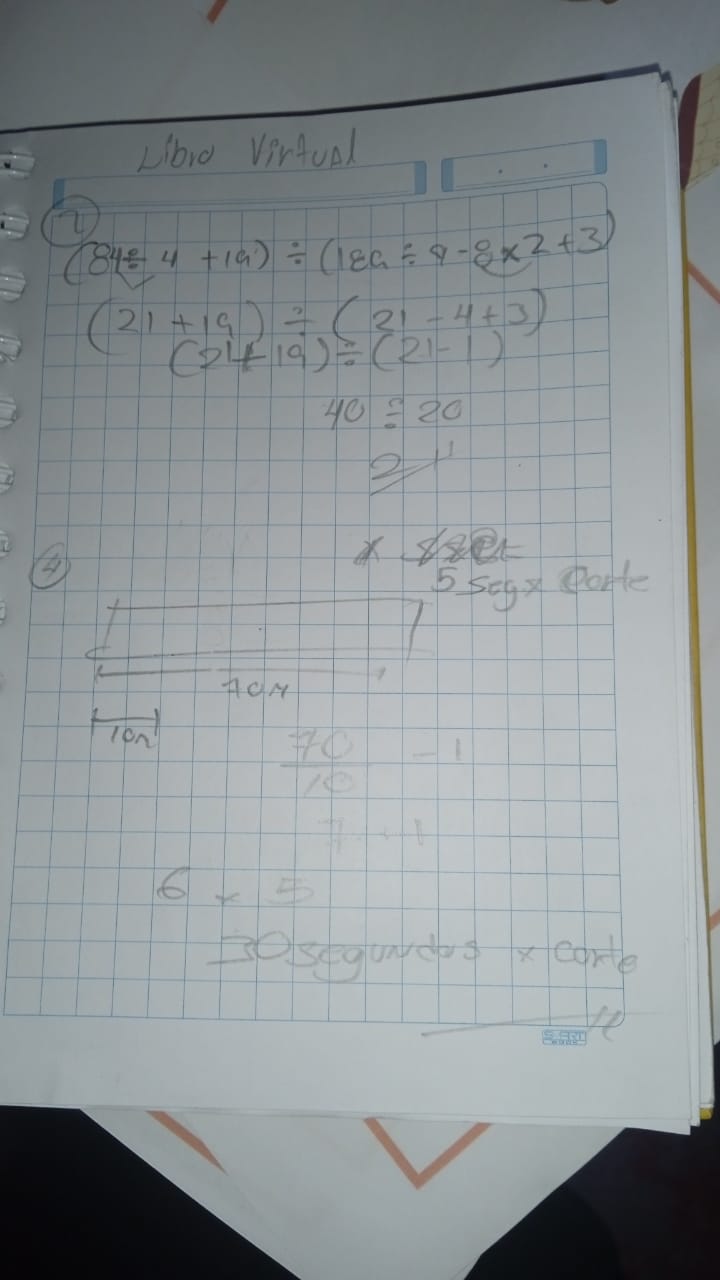 Libro Virtual
1
(84÷4+19)÷(189÷9-8x2+3)
(21+19)÷(21-4+3)
(21+19)÷(21-1)
40÷20
2
4
5 seg x corte
70m
10m
70/10 - 1
7 - 1
6 x 5
30 segundos x corte